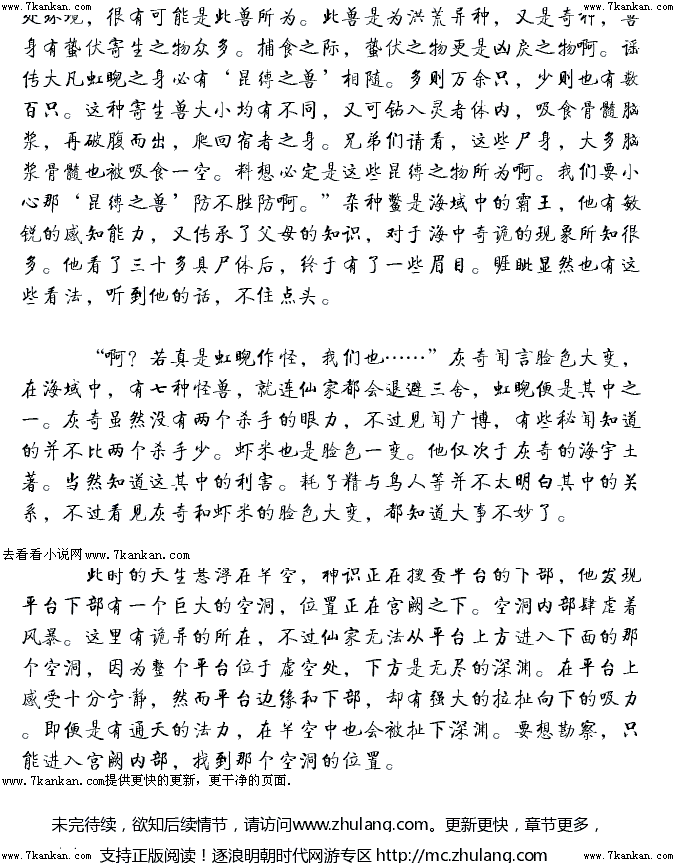 www.7kankan.com www.7kankan.com
处环境，很有可能是此兽所为。此兽是为洪荒异种，又是奇种，兽
身有蛰伏寄生之物众多。捕食之际，蛰伏之物更是凶戾之物啊。谣
传大凡虹睨之身必有‘昆缚之兽’相随。多则万余只，少则也有数
百只。这种寄生兽大小均有不同，又可钻入灵者体内，吸食骨髓脑
浆，再破腹而出，爬回宿者之身。兄弟们请看，这些尸身，大多脑
浆骨髓也被吸食一空。料想必定是这些昆缚之物所为啊。我们要小
心那‘昆缚之兽’防不胜防啊。”杂种鳖是海域中的霸王，他有敏
锐的感知能力，又传承了父母的知识，对于海中奇诡的现象所知很
多。他看了三十多具尸体后，终于有了一些眉目。睚眦显然也有这
些看法，听到他的话，不住点头。
“啊？若真是虹睨作怪，我们也……”灰奇闻言脸色大变，
在海域中，有七种怪兽，就连仙家都会退避三舍，虹睨便是其中之
一。灰奇虽然没有两个杀手的眼力，不过见闻广博，有些秘闻知道
的并不比两个杀手少。虾米也是脸色一变。他仅次于灰奇的海宇土
著。当然知道这其中的利害。耗子精与鸟人等并不太明白其中的关
系，不过看见灰奇和虾米的脸色大变，都知道大事不妙了。
去看看小说网www.7kankan.com
此时的天生悬浮在半空，神识正在搜查平台的下部，他发现
平台下部有一个巨大的空洞，位置正在宫阙之下。空洞内部肆虐着
风暴。这里有诡异的所在，不过仙家无法从平台上方进入下面的那
个空洞，因为整个平台位于虚空处，下方是无尽的深渊。在平台上
感受十分宁静，然而平台边缘和下部，却有强大的拉扯向下的吸力
。即便是有通天的法力，在半空中也会被扯下深渊。要想勘察，只
能进入宫阙内部，找到那个空洞的位置。
www.7kankan.com提供更快的更新，更干净的页面.
未完待续，欲知后续情节，请访问www.zhulang.com。更新更快，章节更多，
www.7kankan.com 支持正版阅读！逐浪明朝时代网游专区 http://mc.zhulang.com/ www.7kankan.com